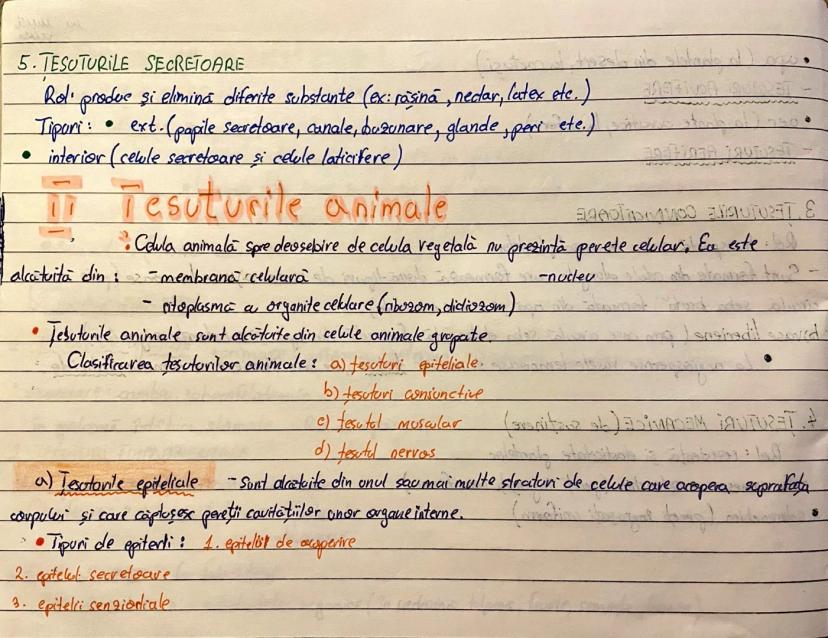 5. ȚESUTURILE SECRETOARE
Rol: produc și elimină diferite substanțe (ex: rășină, nectar, latex etc.)
Tipuri: • ext. (papile secretoare, canale, buzunare, glande, peri etc.)
• interior (celule secretoare și celule laticifere)
II Țesuturile animale
Celula animală spre deosebire de celula vegetală nu prezintă perete celular. Ea este
alcătuită din: - membrană celulară - nucleu
- citoplasmă a organite celulare (ribozom, dictiozom)
• Țesuturile animale sunt alcătuite din celule animale grupate.
Clasificarea țesuturilor animale: a) țesuturi epiteliale
b) țesuturi conjunctive
c) țesutul muscular
d) țesutul nervos
a) Țesuturile epiteliale - Sunt alcătuite din unul sau mai multe straturi de celule care acoperă suprafața
corpului și care căptușesc pereții cavităților unor organe interne.
• Tipuri de epitelii: 1. epitelii de acoperire
2. epitelii secretoare
3. epitelii senzoriale